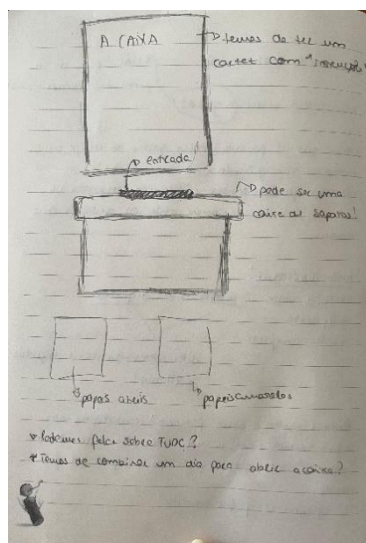 A CAIXA
temos de ter um
cartaz com "instruções"
entrada!
pode ser uma
caixa de sapatos!
papeis azuis
papeis amarelos
* Podemos falar sobre TUDO?
* Temos de combinar um dia para abrir a caixa?